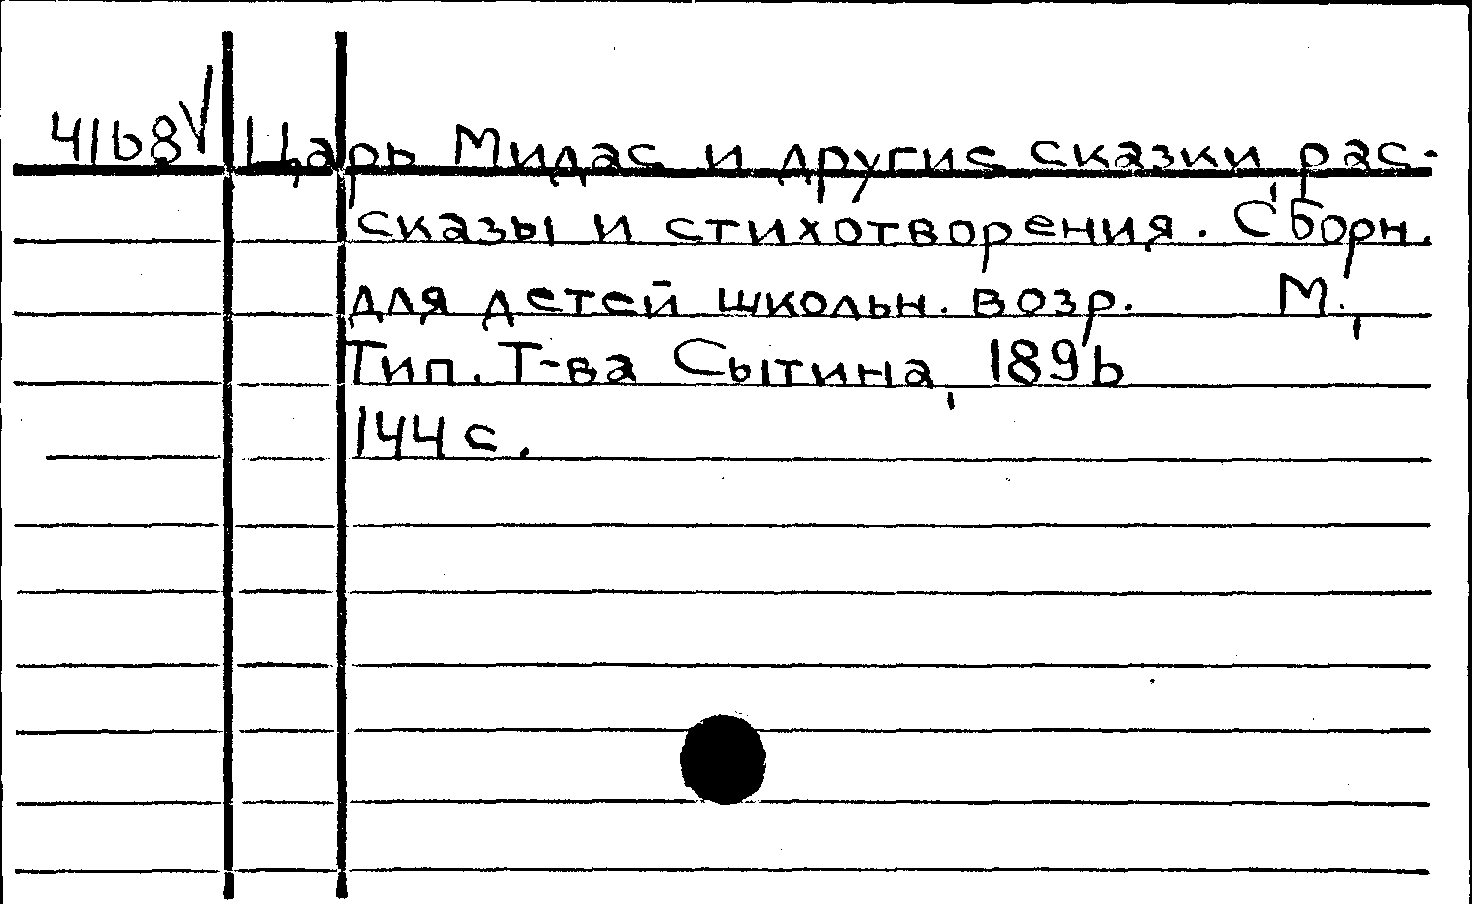 4168√ Царь Мидас и другие сказки рас-
сказы и стихотворения. Сборн.
для детей школьн. возр. М.,
Тип. Т-ва Сытина, 1896
144 с.